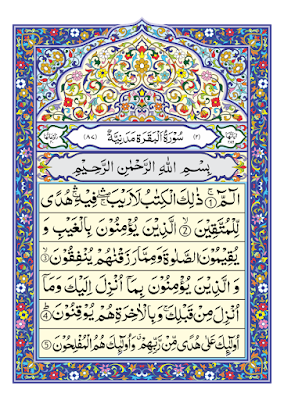 سُوْرَةُ الْبَقَرَةِ مَدَنِيَّةٌ (٢) (٨٧)
بِسْمِ اللهِ الرَّحْمٰنِ الرَّحِيْمِ
الٓمّٓ ① ذٰلِكَ الْكِتٰبُ لَارَيْبَ ۛ فِيْهِ ۛ هُدًى
لِّلْمُتَّقِيْنَ ② الَّذِيْنَ يُؤْمِنُوْنَ بِالْغَيْبِ وَ
يُقِيْمُوْنَ الصَّلٰوةَ وَمِمَّا رَزَقْنٰهُمْ يُنْفِقُوْنَ ③
وَ الَّذِيْنَ يُؤْمِنُوْنَ بِمَآ اُنْزِلَ اِلَيْكَ وَمَآ
اُنْزِلَ مِنْ قَبْلِكَ ۚ وَبِالْاٰخِرَةِ هُمْ يُوْقِنُوْنَ ④
اُولٰٓئِكَ عَلٰى هُدًى مِّنْ رَّبِّهِمْ ۙ وَاُولٰٓئِكَ هُمُ الْمُفْلِحُوْنَ ⑤